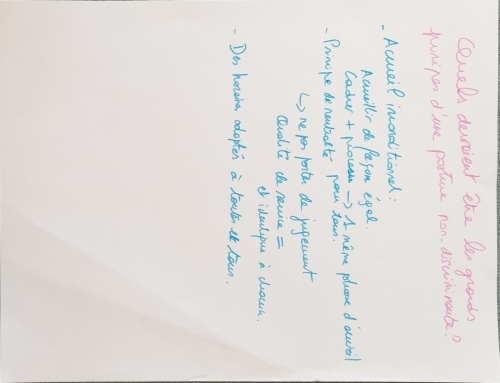 Quels devraient être les grands
principes d'une posture non-discriminante?
- Accueil inconditionnel :
Accueillir de façon égal.
Cadrer + processus → 1 même phrase d'accueil
- Principe de neutralité pour tous.
↳ ne pas porter de jugement
Qualité de service =
et identique à chacun.
- Des horaires adaptés à toutes et tous.